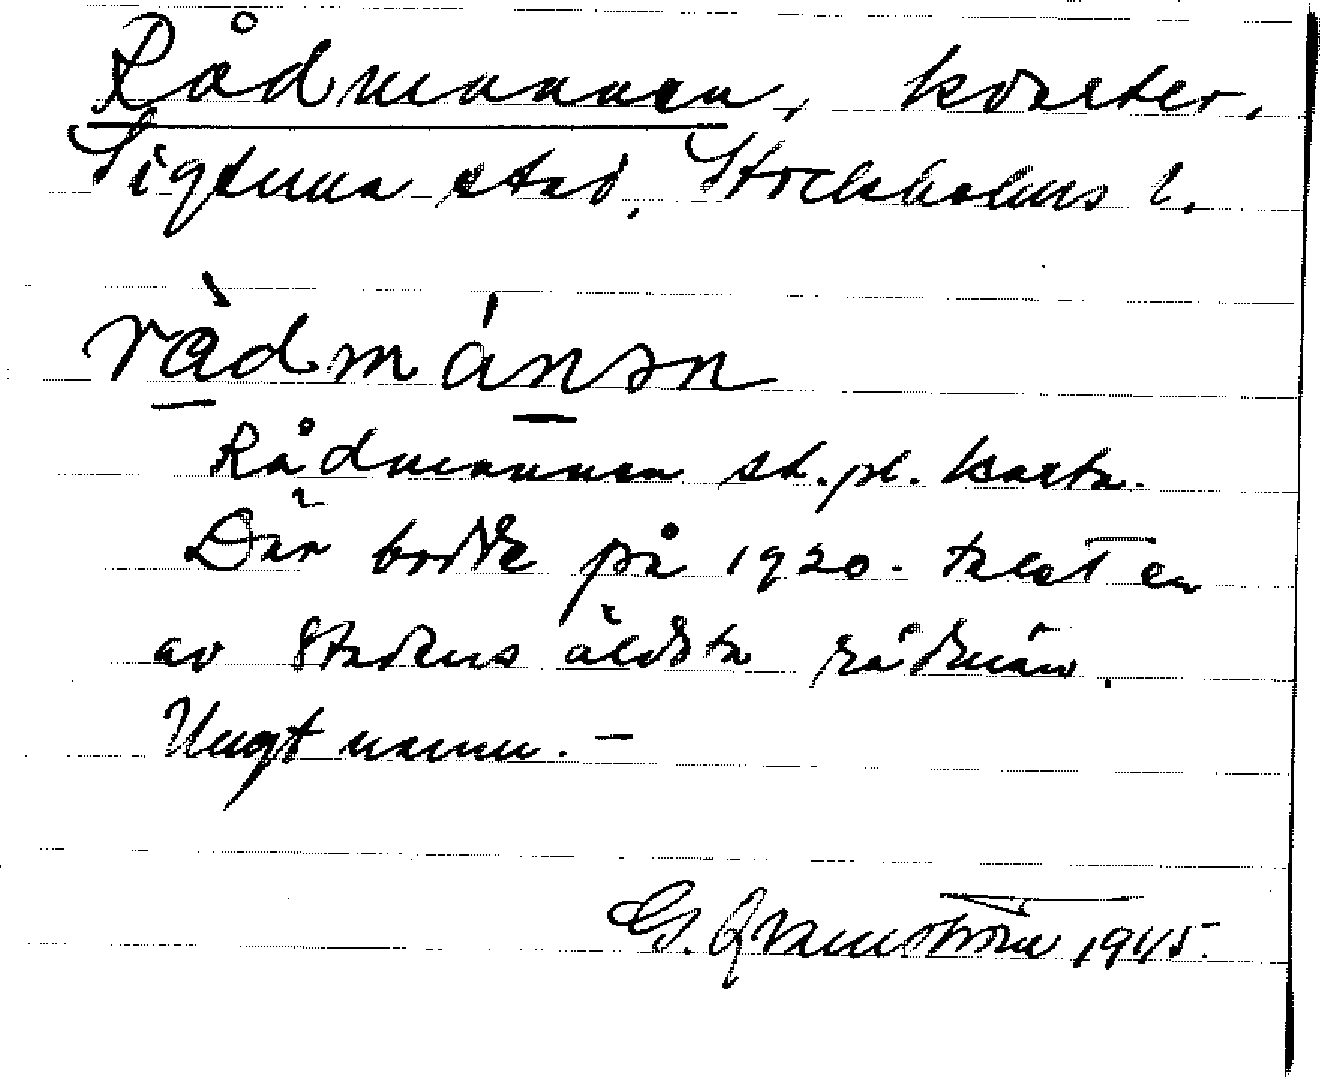 Rådmannen, kvarter.
Sigtuna stad, Stockholms l.
rådmánən
Rådmannen st.pl. karta.
Där bodde på 1920-talet en
av stadens äldsta rådmän.
Ungt namn. -
G. Qvarnström 1945.